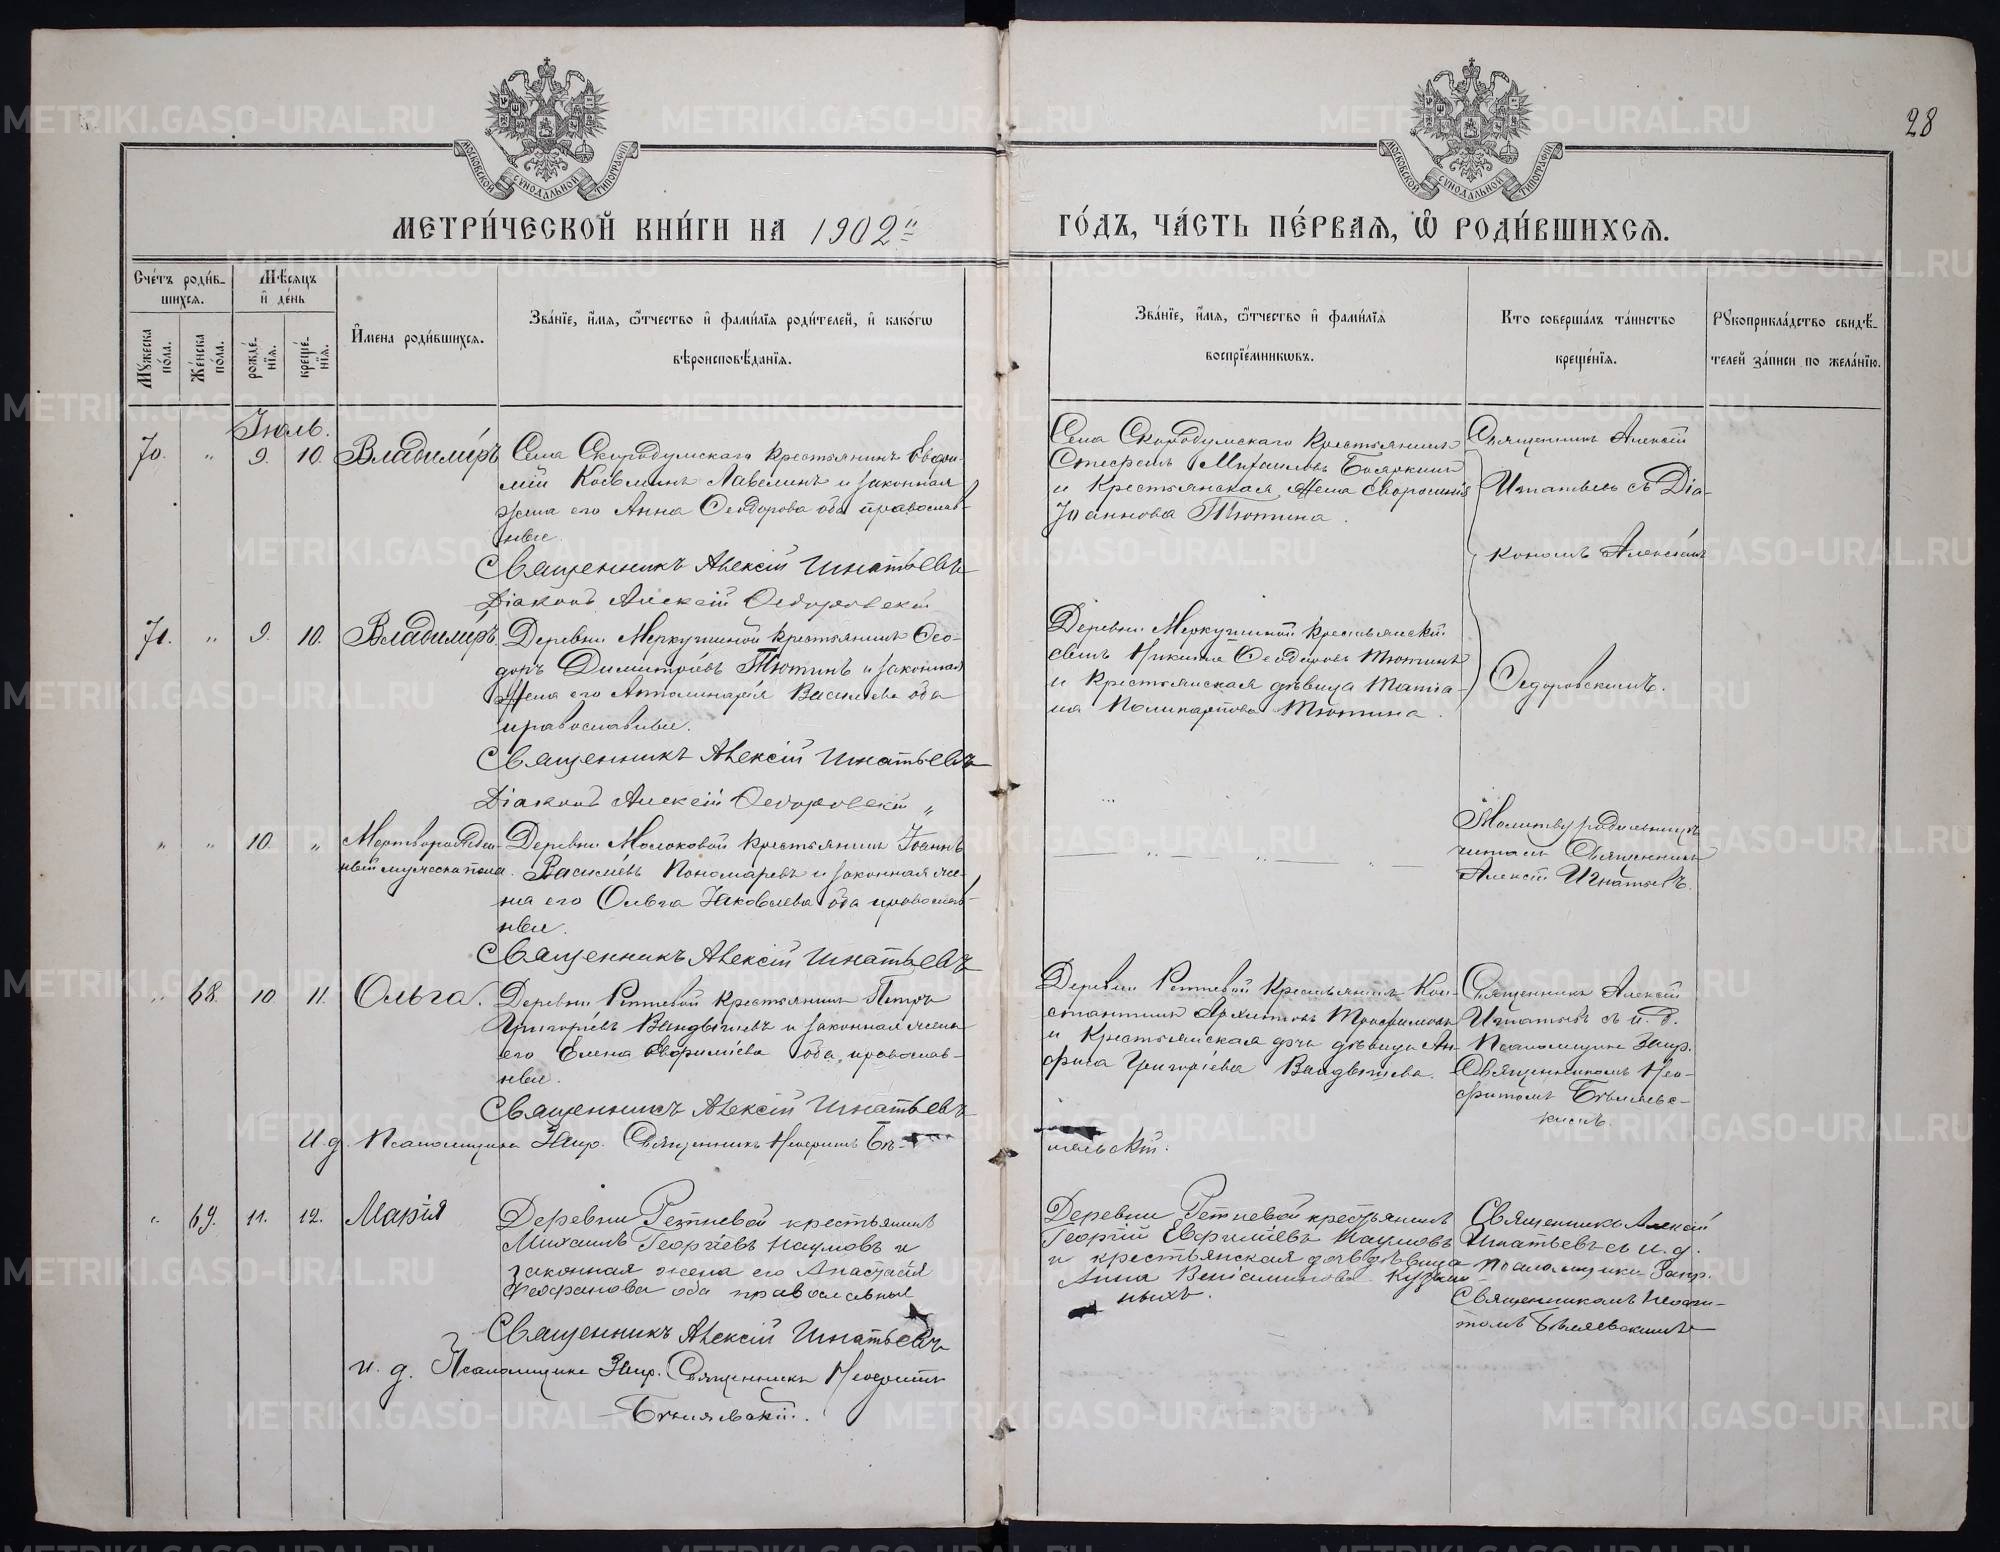 28
МОСКОВСКОЙ СѴНОДАЛЬНОЙ ТИПОГРАФІИ
МОСКОВСКОЙ СѴНОДАЛЬНОЙ ТИПОГРАФІИ
МЕТРИ́ЧЕСКОЙ КНИ́ГИ НА 1902й
ГО́ДЪ, ЧА́СТЬ ПЕ́РВАѦ, Ѡ҆ РОДИ́ВШИХСѦ.
Сче́тъ роди́в-
шихсѧ.
Мѣ́сѧцъ
и҆ де́нь
Мꙋ́жеска
по́ла.
Же́нска
по́ла.
рожде́-
нїѧ.
креще́-
нїѧ.
И҆мена роди́вшихсѧ.
Зва́нїе, и҆́мѧ, ѻ҆́тчество и҆ фами́лїѧ роди́телей, и҆ како́гѡ
вѣроисповѣ́данїѧ.
Зва́нїе, и҆́мѧ, ѻ҆́тчество и҆ фами́лїѧ
воспрїе́мникѡвъ.
Кто̀ соверша́лъ та́инство
креще́нїѧ.
Рꙋкоприкла́дство свидѣ́-
телей за́писи по жела́нїю.
Іюль.
70. " 9. 10. Владиміръ
Села Скородумскаго крестьянинъ Евфи-
мій Козьминъ Лавелинъ и законная
жена его Анна Ѳеодорова оба православ-
ные.
Священникъ Алексій Игнатьевъ
Діаконъ Алексій Ѳедоровскій
Села Скородумскаго крестьянинъ
Михаиловъ Бояркинъ
и крестьянская жена Евфросинія
Іоаннова Тютина.
Священникъ Алексій
Игнатьевъ съ Діа-
кономъ Алексіемъ
Ѳедоровскимъ.
71. " 9. 10. Владиміръ.
Деревни Меркушиной крестьянинъ Ѳео-
доръ Димитріевъ Тютинъ и законная
жена его Аполинарія Васильева оба
православные.
Священникъ Алексій Игнатьевъ
Діаконъ Алексій Ѳедоровскій "
Деревни Меркушиной крестьянскій
сынъ Никита Ѳеодоровъ Тютинъ
и крестьянская дѣвица Татіа-
на Поликарпова Тютина.
" " 10. " Мертворожден-
ный мужеска пола.
Деревни Молоковой крестьянинъ Іоаннъ
Васильевъ Пономаревъ и законная же-
на его Ольга Яковлева оба православ-
ные.
Священникъ Алексій Игнатьевъ
Молитву родильницѣ
читалъ Священникъ
Алексій Игнатьевъ.
" 68. 10 11. Ольга.
Деревни Ретневой крестьянинъ Петръ
Григоріевъ Вандышевъ и законная жена
его Елена Евфиміева оба православ-
ные.
Священникъ Алексій Игнатьевъ
И. д. Псаломщика Запр. Священникъ Неофитъ Бѣ-
ляевскій.
Деревни Ретневой крестьянинъ Кон-
стантинъ Архиповъ Трофимовъ
и крестьянская дочь дѣвица Ан-
фиса Григоріева Вандышева.
Священникъ Алексій
Игнатьевъ съ и. д.
Псаломщика Запр.
Священникомъ Нео-
фитомъ Бѣляевс-
кимъ.
" 69. 11. 12. Марія
Деревни Ретневой крестьянинъ
Михаилъ Георгіевъ Наумовъ и
законная жена его Анастасія
Ѳеофанова оба православные
Священникъ Алексій Игнатьевъ
и. д. Псаломщика Запр. Священникъ Неофитъ
Бѣляевскій.
Деревни Ретневой крестьянинъ
Георгій Евфиміевъ Наумовъ
и крестьянская дочь дѣвица
Анна Веніаминова Кузьми-
ныхъ.
Священникъ Алексій
Игнатьевъ съ и. д.
псаломщика Запр.
Священникомъ Неофи-
томъ Бѣляевскимъ
METRIKI.GASO-URAL.RU